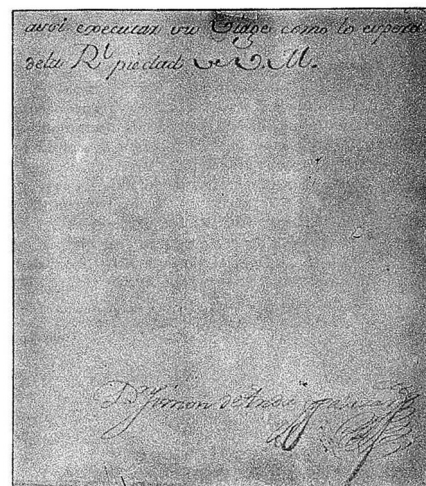 executar su Viage como lo espera
dela Rl piedad de V. M.
Dn Simon de Anda